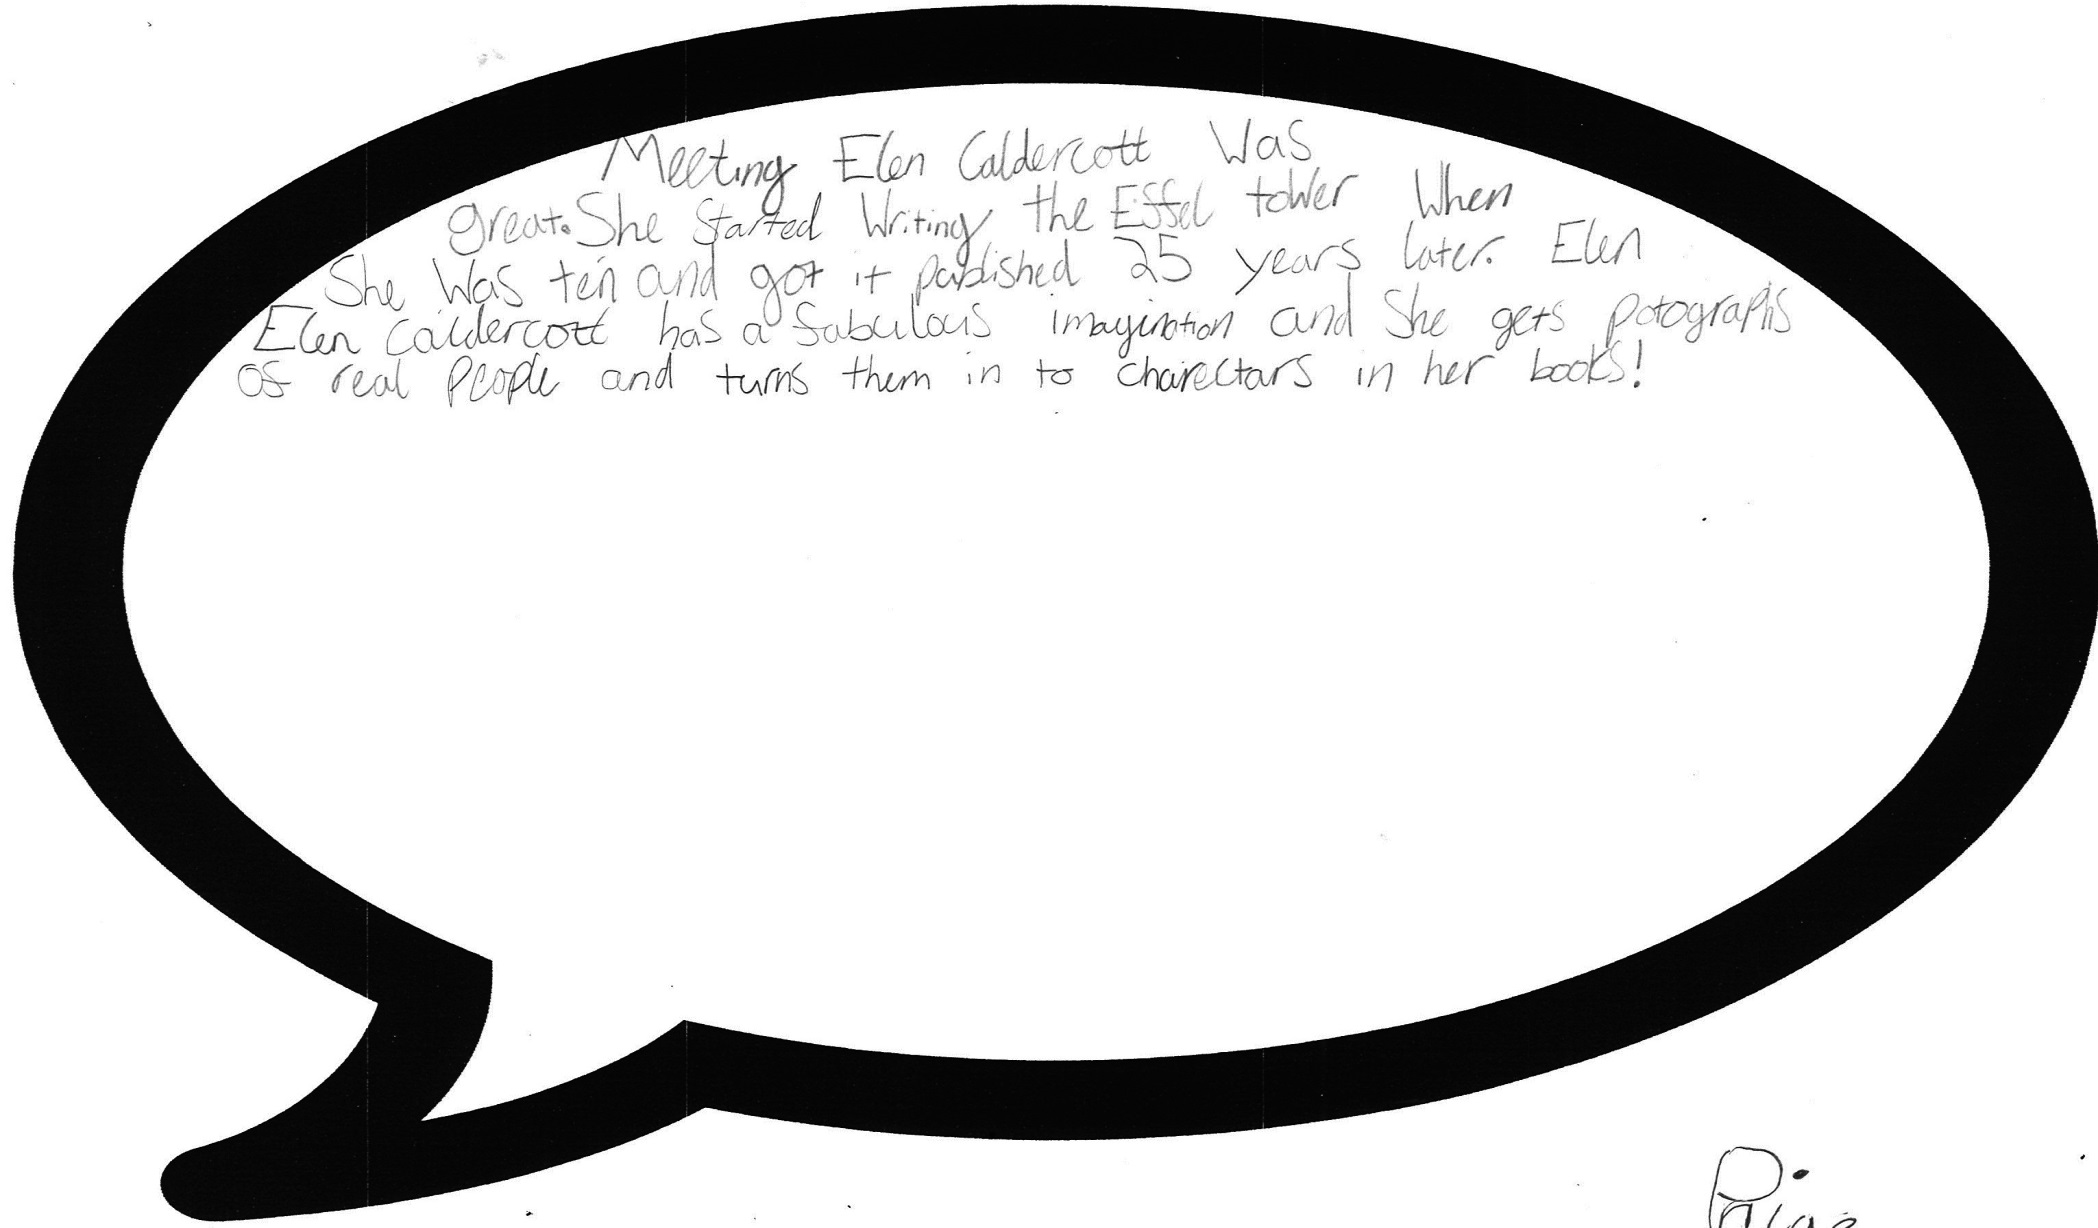 Meeting Elen Caldercott Was
great. She started Writing the Eiffel tower When
She Was ten and got it published 25 years later. Elen
Elen Caldercott has a fabulous imagination and She gets potographs
of real People and turns them in to charectars in her books!
Paige